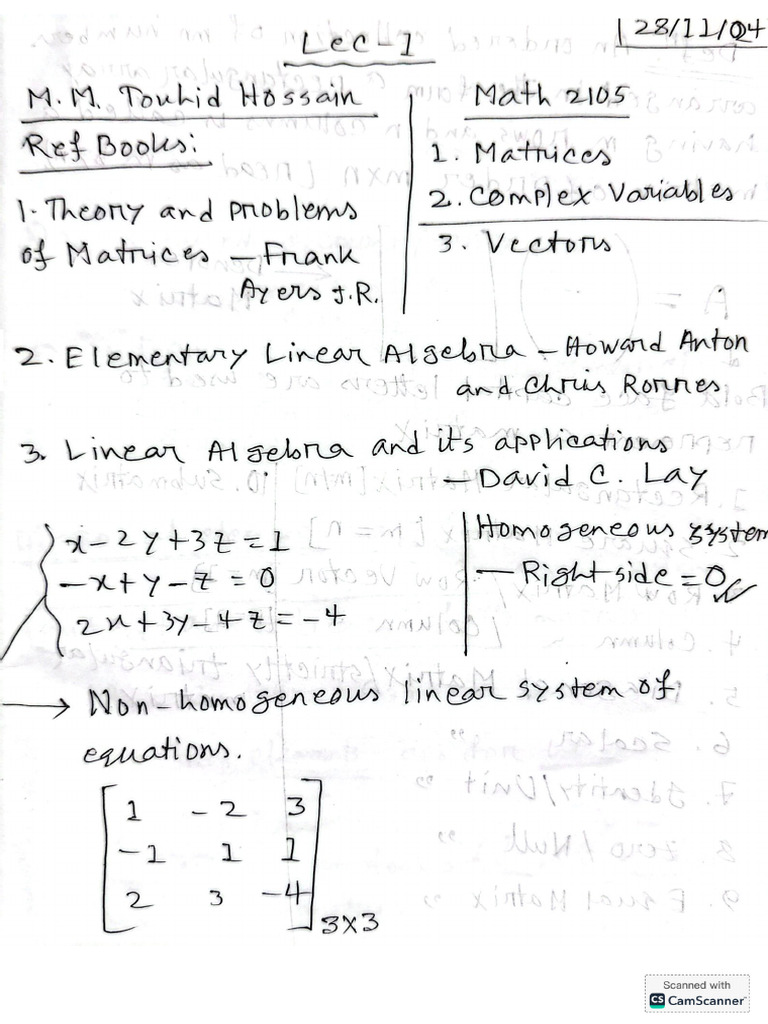 Lec-1
28/11/04
M.M. Touhid Hossain
Ref Books:
1. Theory and problems
of Matrices — Frank
Ayers J.R.
Math 2105
1. Matrices
2. Complex Variables
3. Vectors
2. Elementary Linear Algebra — Howard Anton
and Chris Rorres
3. Linear Algebra and its applications
— David C. Lay
x - 2y + 3z = 1
-x + y - z = 0
2x + 3y - 4z = -4
Homogeneous system
— Right side = 0
→ Non-homogeneous linear system of
equations.
1 -2 3
-1 1 1
2 3 -4
3×3
Scanned with
CS CamScanner